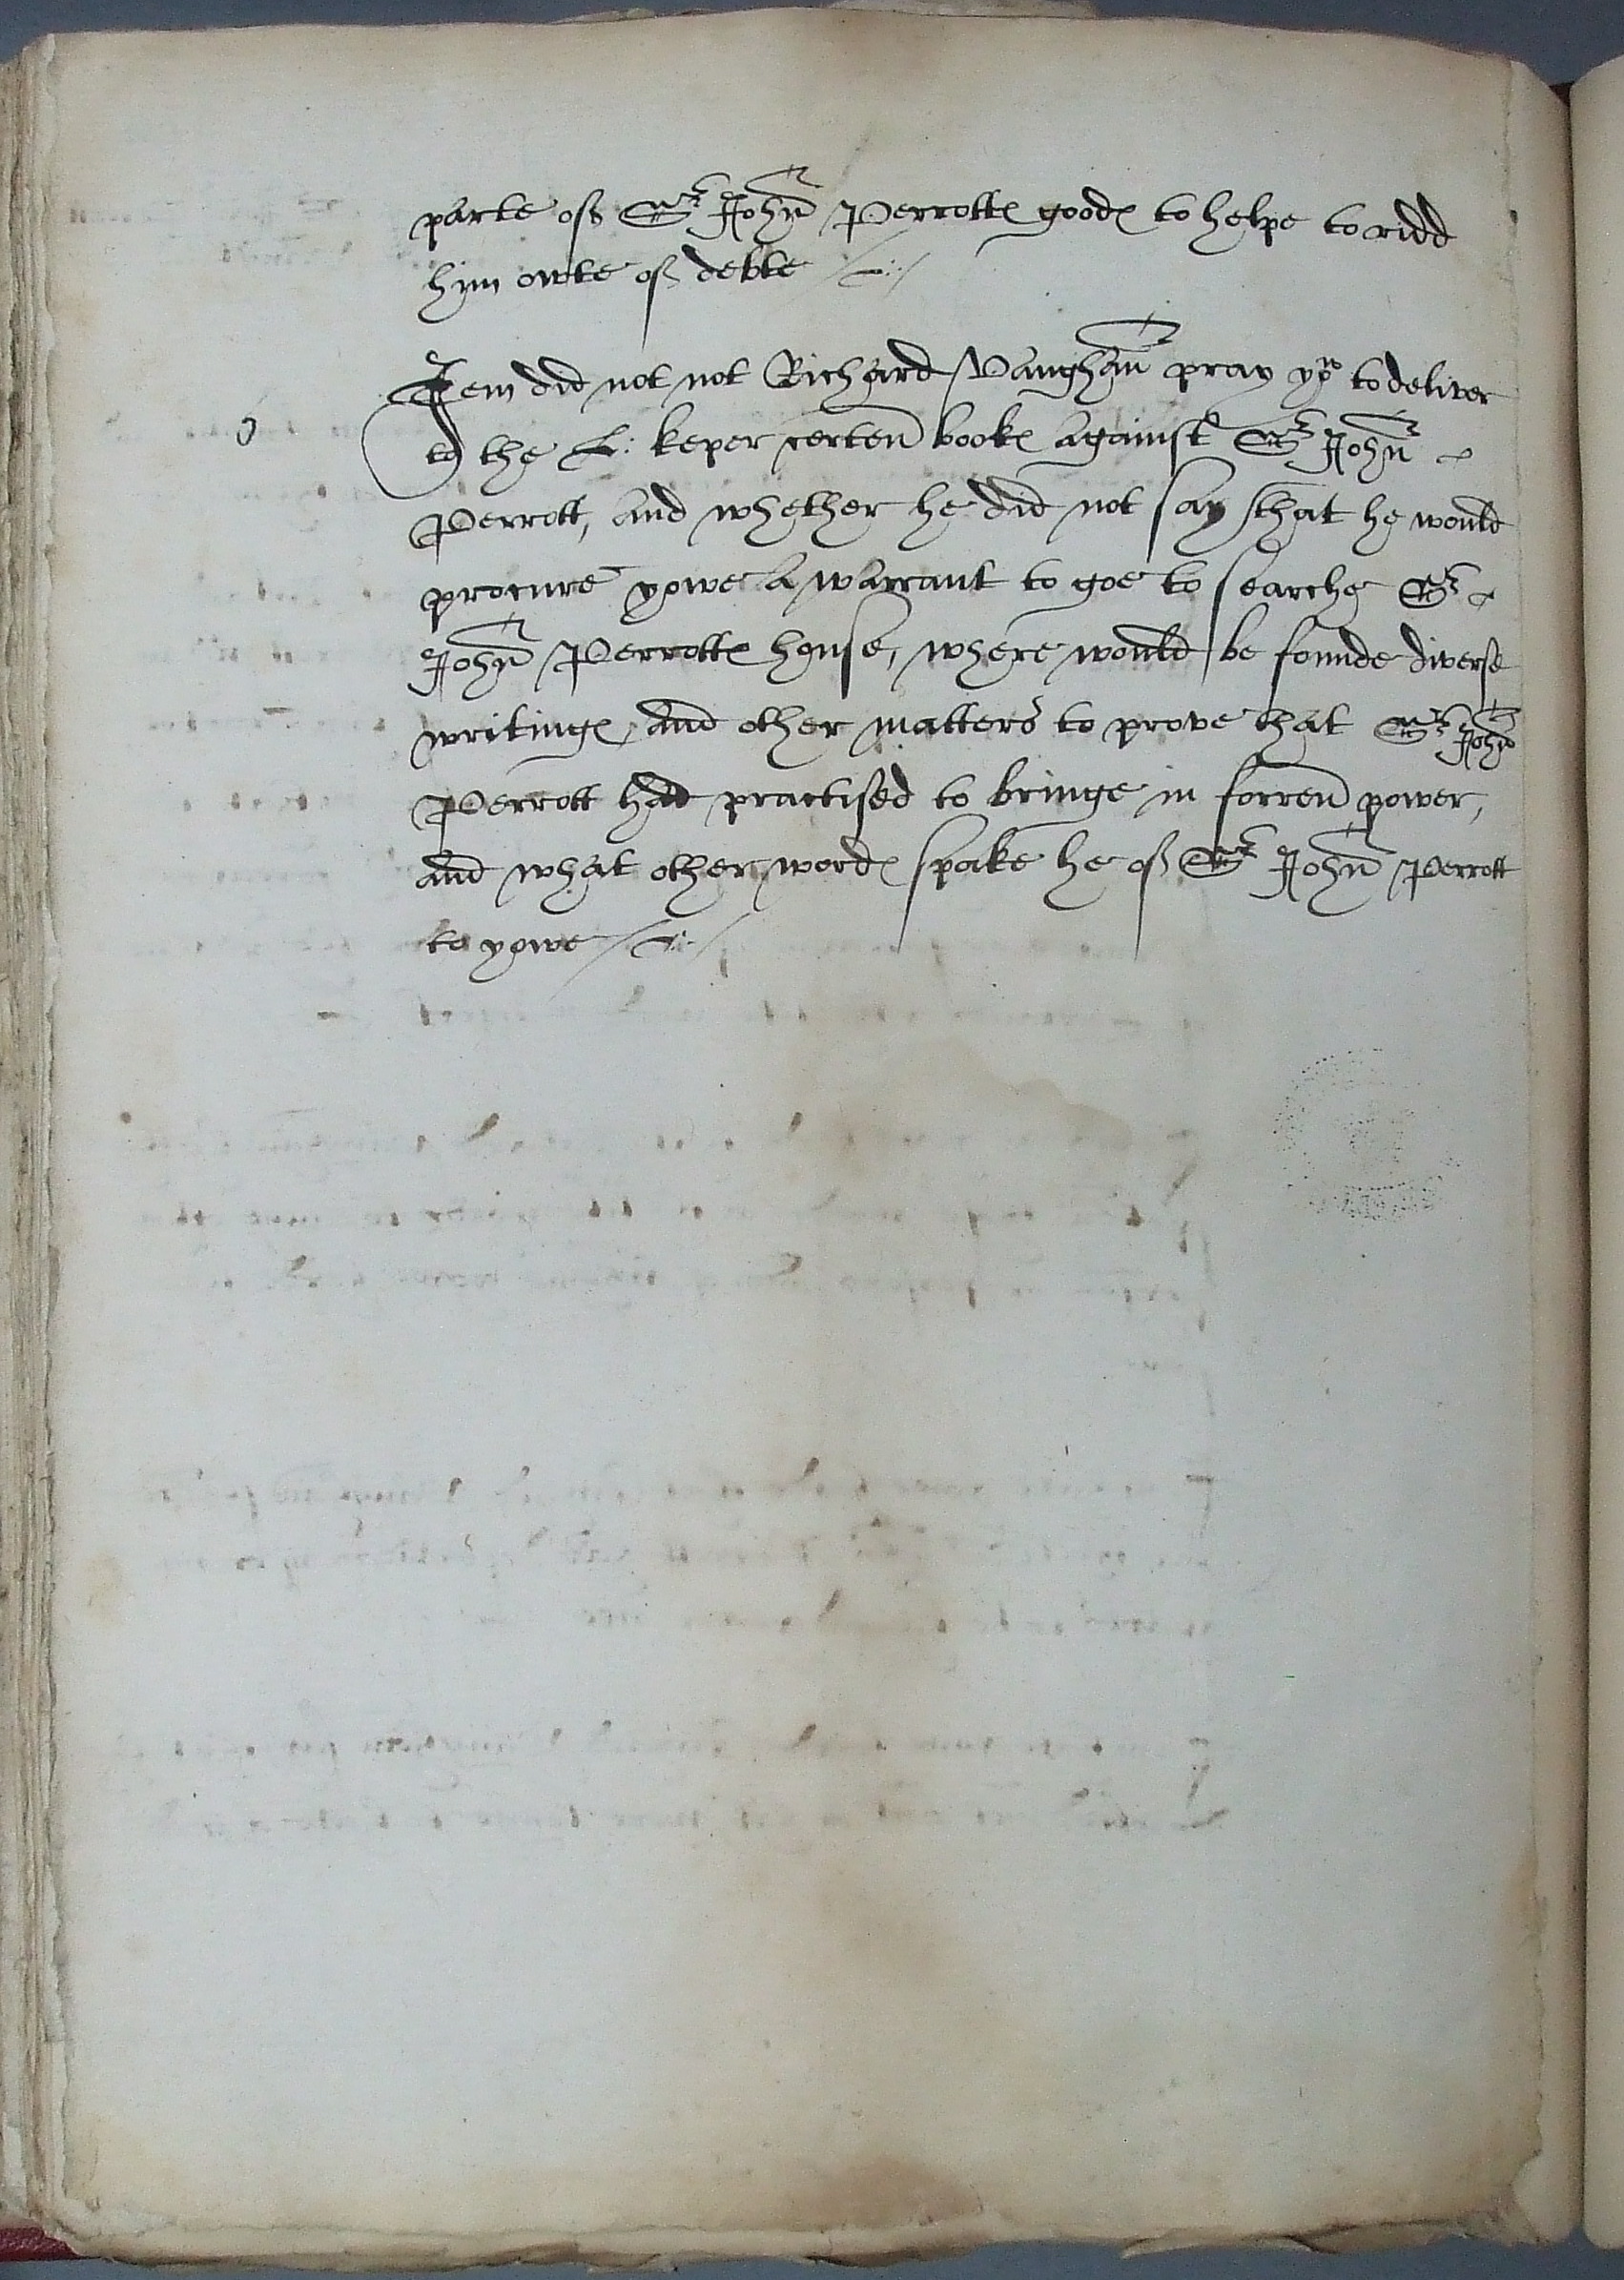 parte of Sr John Perrottes goodes to helpe to ridd
hym owte of debte
Item did not not Richard Vaughan pray yow to deliver
to the L: keper certen bookes against Sr John
Perrott, and whether he did not say that he would
procure yowe a warrant to goe to searche Sr
John Perrottes house, where would be founde diverse
writinges, and other matters to prove that Sr John
Perrott had practised to bringe in forren power,
and what other wordes spake he of Sr John Perrott
to yowe